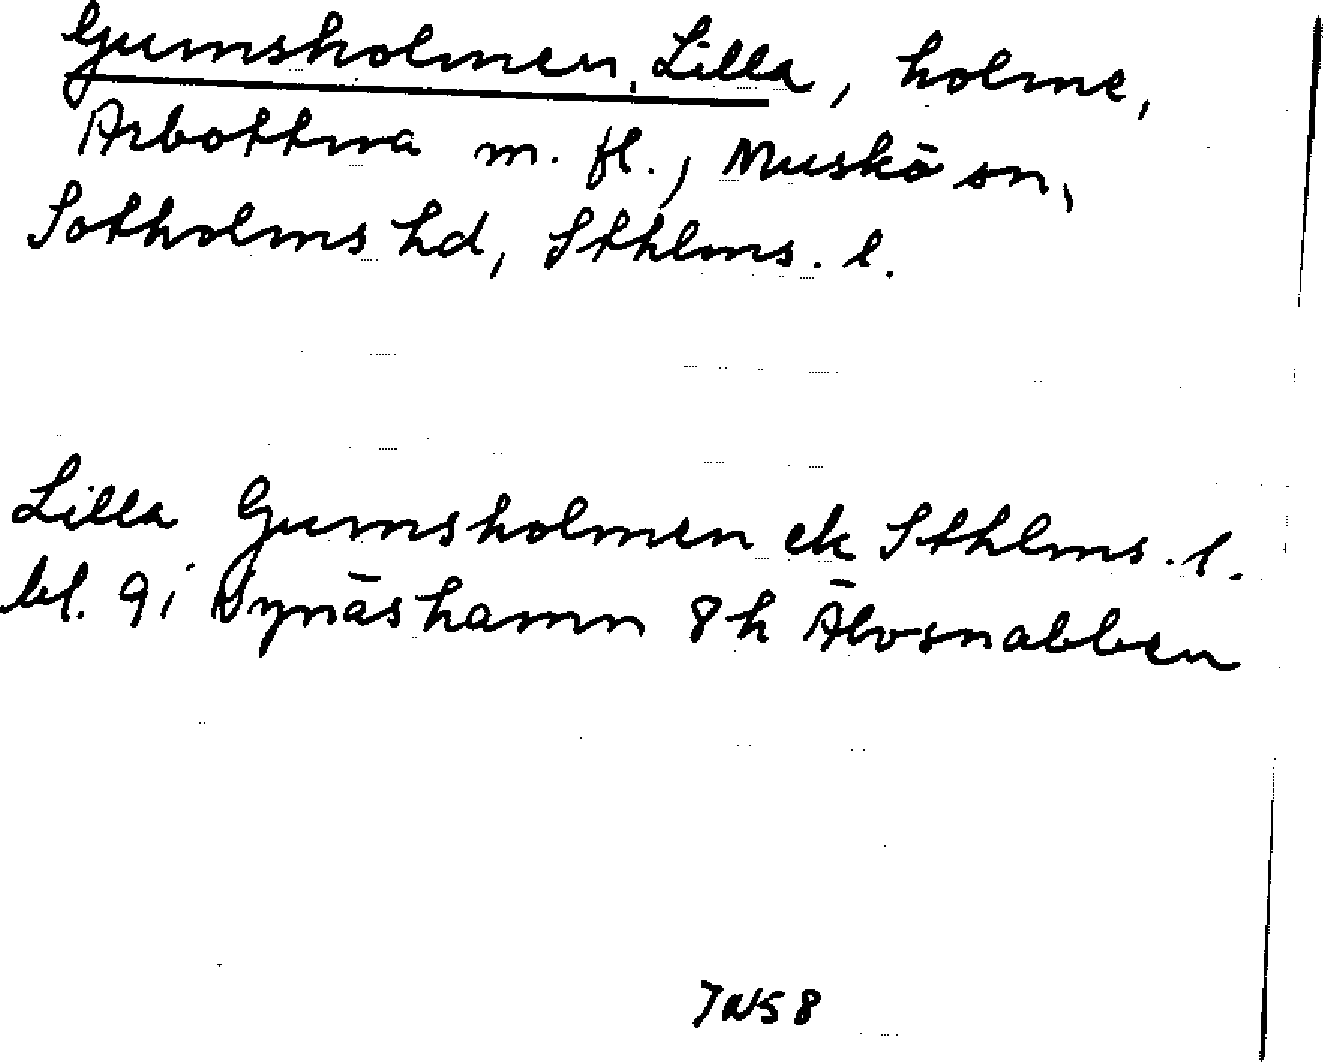 Gumsholmen, Lilla, holme,
Arbottna m. fl., Muskö sn,
Sotholms hd, Sthlms. l.
Lilla Gumsholmen ek Sthlms. l.
bl. 9 i Nynäshamn 8h Älvsnabben